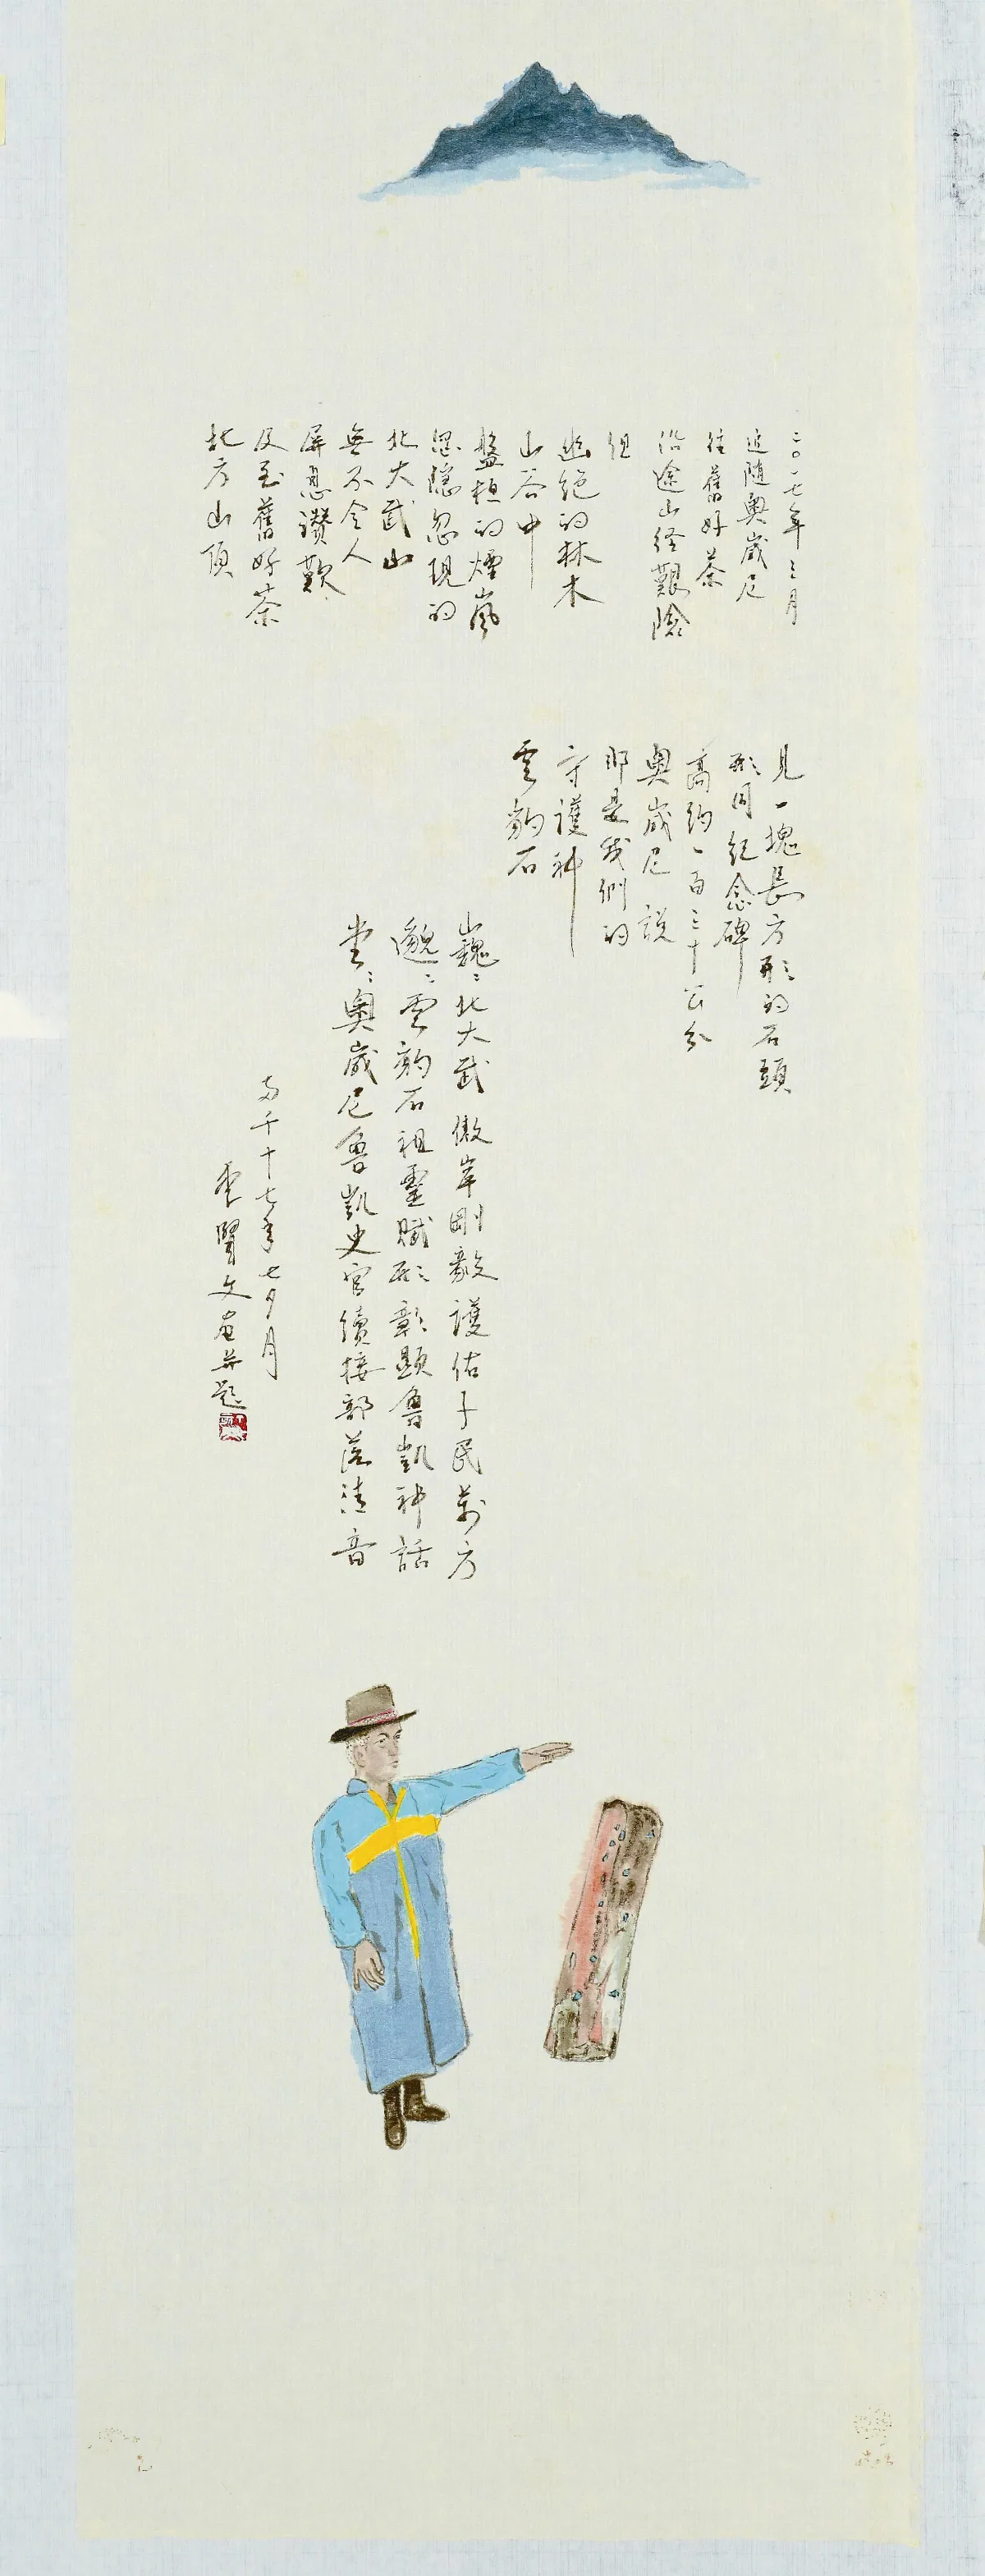 二〇一七年三月
追隨奧崴尼
往舊好茶
沿途山徑艱險
但
幽絕的林木
山谷中
盤桓的煙嵐
忽隱忽現的
北大武山
無不令人
屏息讚歎
及至舊好茶
北方山頂
見一塊長方形的石頭
形同紀念碑
高約一百三十公分
奧崴尼說
那是我們的
守護神
雲豹石
巍々北大武 傲岸剛毅護佑子民萬方
邈々雲豹石祖靈賦形彰顯魯凱神話
堂々奧崴尼魯凱史官續接部落清音
両千十七年七夕月
李賢文畫并題